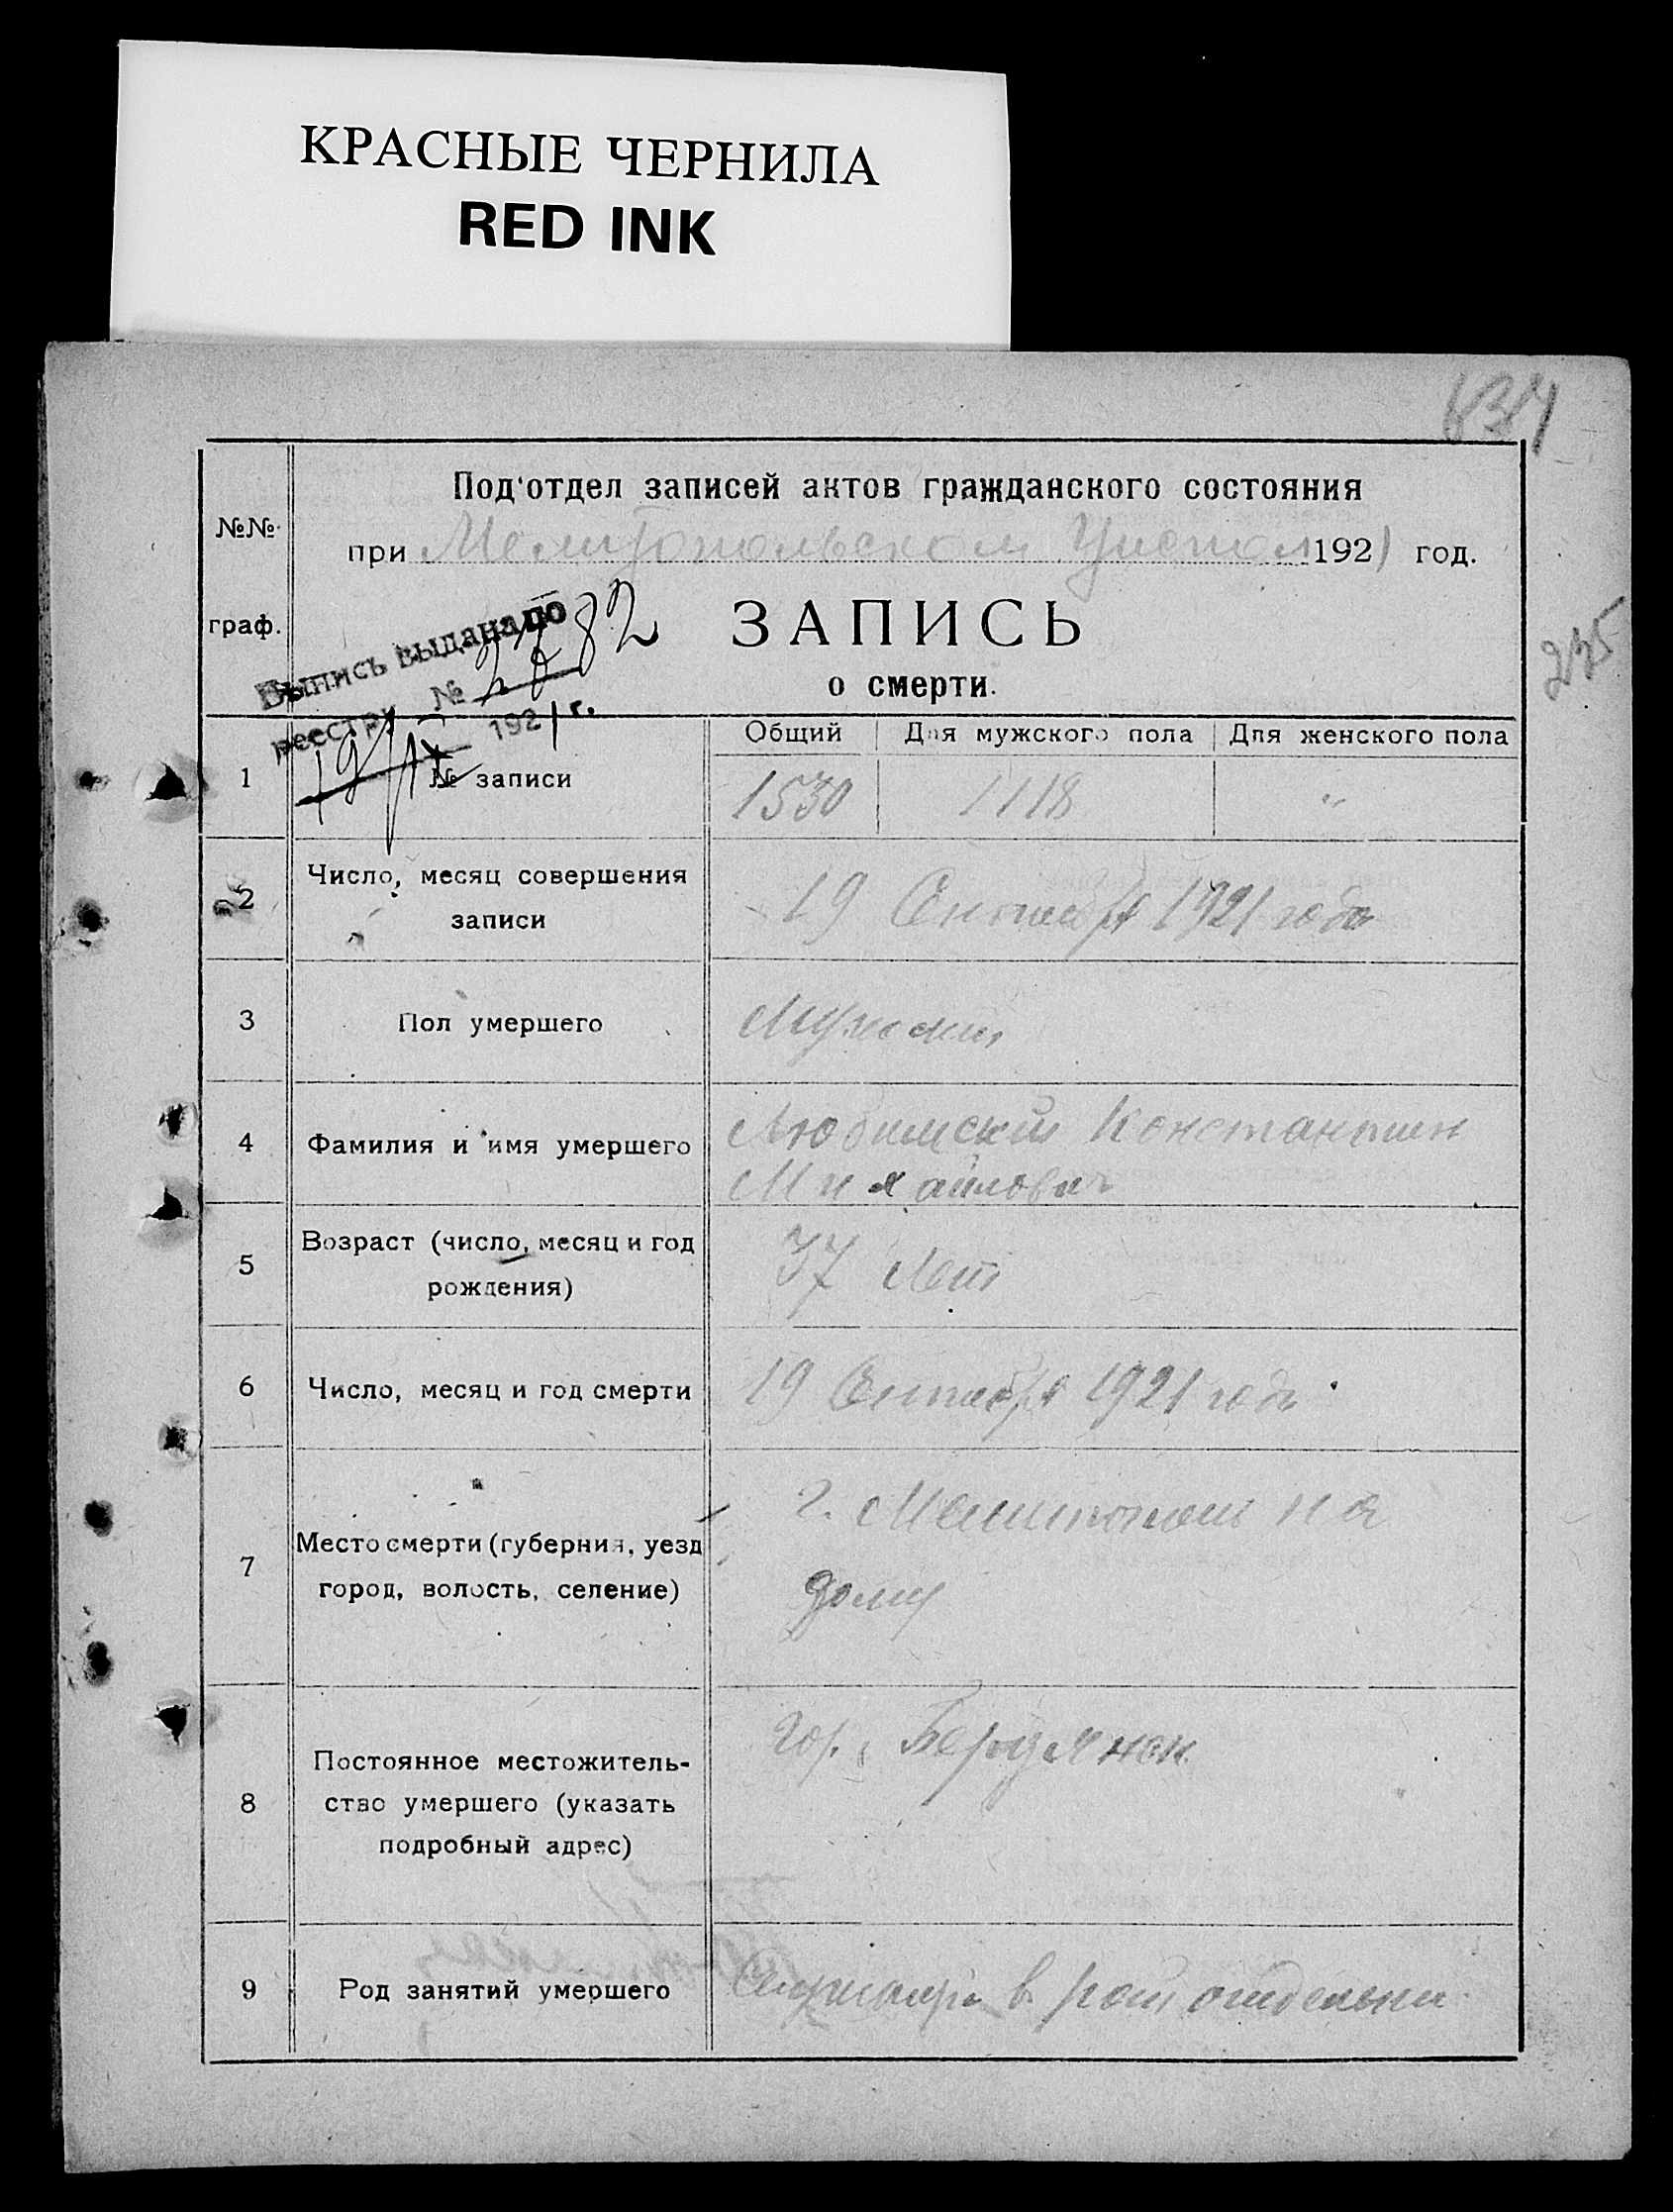 КРАСНЫЕ ЧЕРНИЛА
RED INK
№№
граф.
Под'отдел записей актов гражданского состояния
при Мелитопольском 1921 год.
ЗАПИСЬ
о смерти.
Выпись выдана по
реестру № 2782
19/IX 1921 г.
235
Общий Для мужского пола Для женского пола
1 № записи 1530 1118 "
2 Число, месяц совершения
записи
19 Сентября 1921 года
3 Пол умершего Мужской
4 Фамилия и имя умершего Константин
Михайлович
5 Возраст (число, месяц и год
рождения)
37 лет
6 Число, месяц и год смерти 19 Сентября 1921 года
7 Место смерти (губерния, уезд
город, волость, селение)
г. Мелитополь на
дому
8 Постоянное местожитель-
ство умершего (указать
подробный адрес)
гор. Бердянск
9 Род занятий умершего в